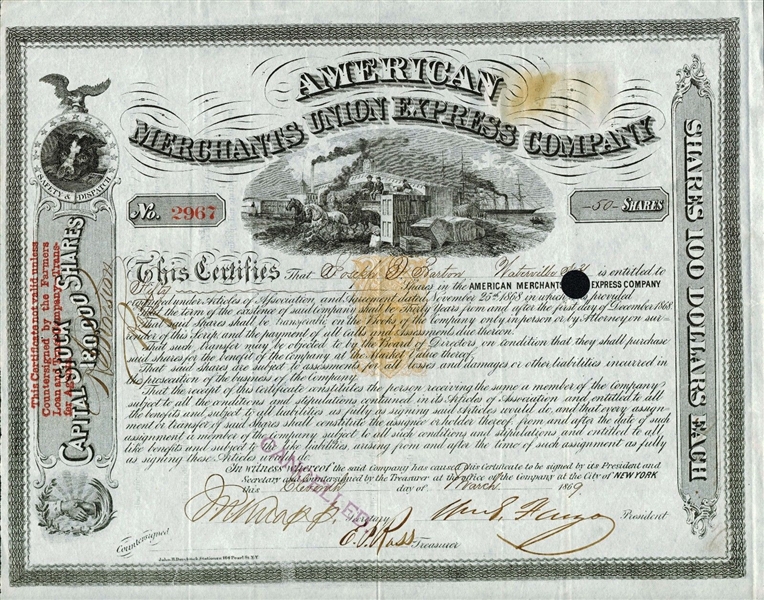 AMERICAN
MERCHANTS UNION EXPRESS COMPANY
SAFETY & DISPATCH
No. 2967
-50- SHARES
This Certifies That Joseph Barton Waterville N.Y. is entitled to
Fifty Shares in the AMERICAN MERCHANTS EXPRESS COMPANY
formed under Articles of Association, and Agreement dated November 25th 1868 in which provided
that the term of the existence of said company shall be Thirty Years from and after the first day of December 1868.
That said shares shall be transferable, on the Books of the Company only in person or by Attorney on sur-
render of this Scrip, and the payment of all calls and assessments due thereon.
That such transfer may be objected to by the Board of Directors, on condition that they shall purchase
said shares for the benefit of the Company at the Market Value thereof.
That said shares are subject to assessment for all loss and damages or other liabilities incurred in
the prosecution of the business of the Company.
That the receipt of this Certificate constitutes the person receiving the same a member of the Company
subject to all the conditions and stipulations contained in its Articles of Association and entitled to all
the benefits and subject to all liabilities as fully as signing said Articles would do, and that every assign-
ment or transfer of said Shares shall constitute the assignee or holder thereof from and after the date of such
assignment a member of the Company subject to all such conditions and stipulations and entitled to all
like benefits and subject to like liabilities arising from and after the time of such assignment as fully
as signing these Articles would do.
In witness whereof the said Company has caused this Certificate to be signed by its President and
Secretary and Countersigned by the Treasurer at the office of the Company at the City of NEW YORK
this day of March 1869
CANCELLED
J. N. Knapp Secretary Wm G. Fargo President
Countersigned
E. P. Ross Treasurer
SHARES 100 DOLLARS EACH
CAPITAL STOCK 180,000 SHARES
This Certificate not valid unless
Countersigned by the Farmers
Loan and Trust Company, Trans-
fer Agents